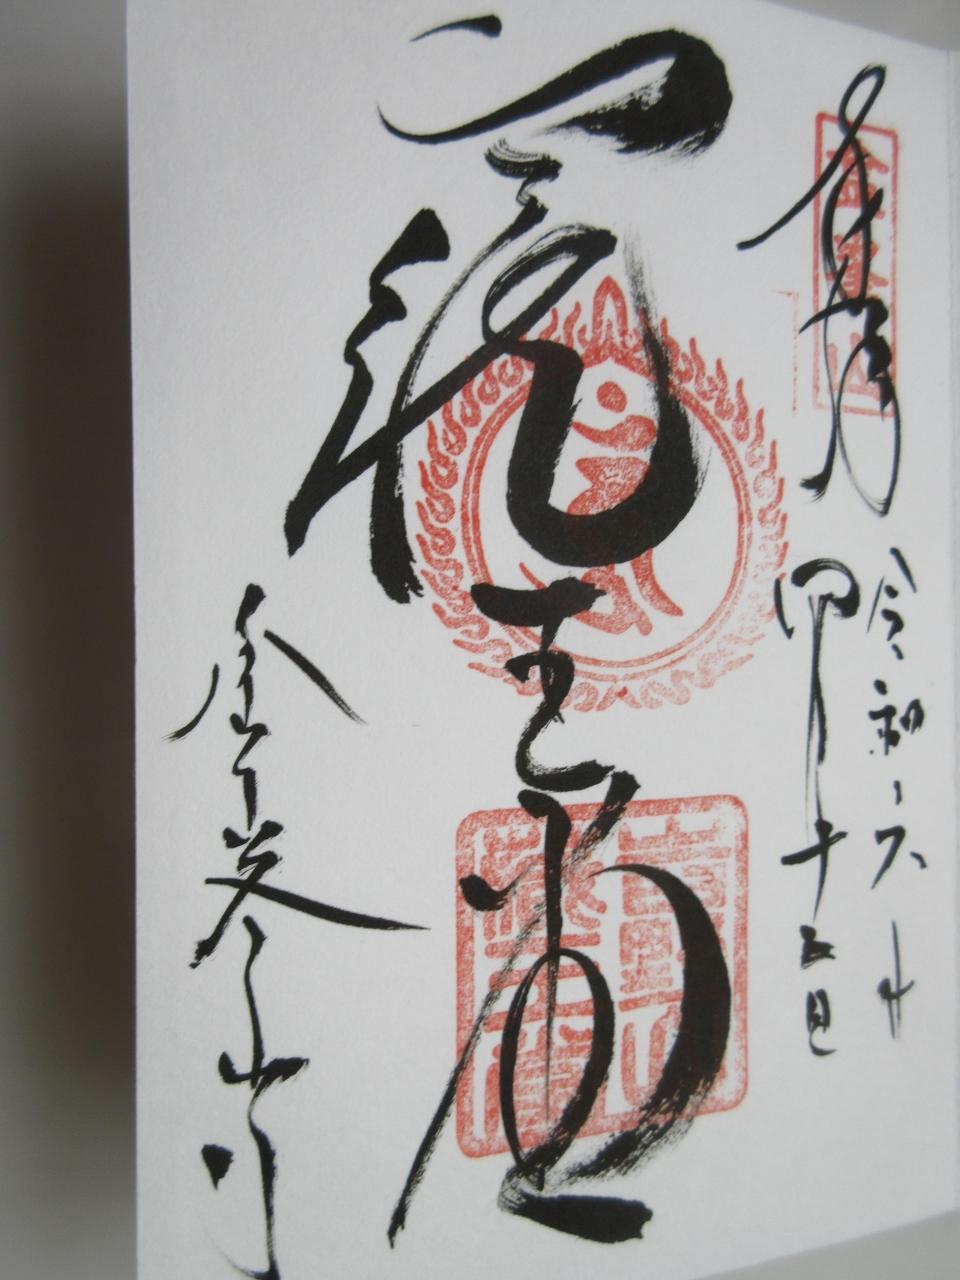 奉拝
金峯山
令和六年
四月十五日
蔵王堂
金峯山寺